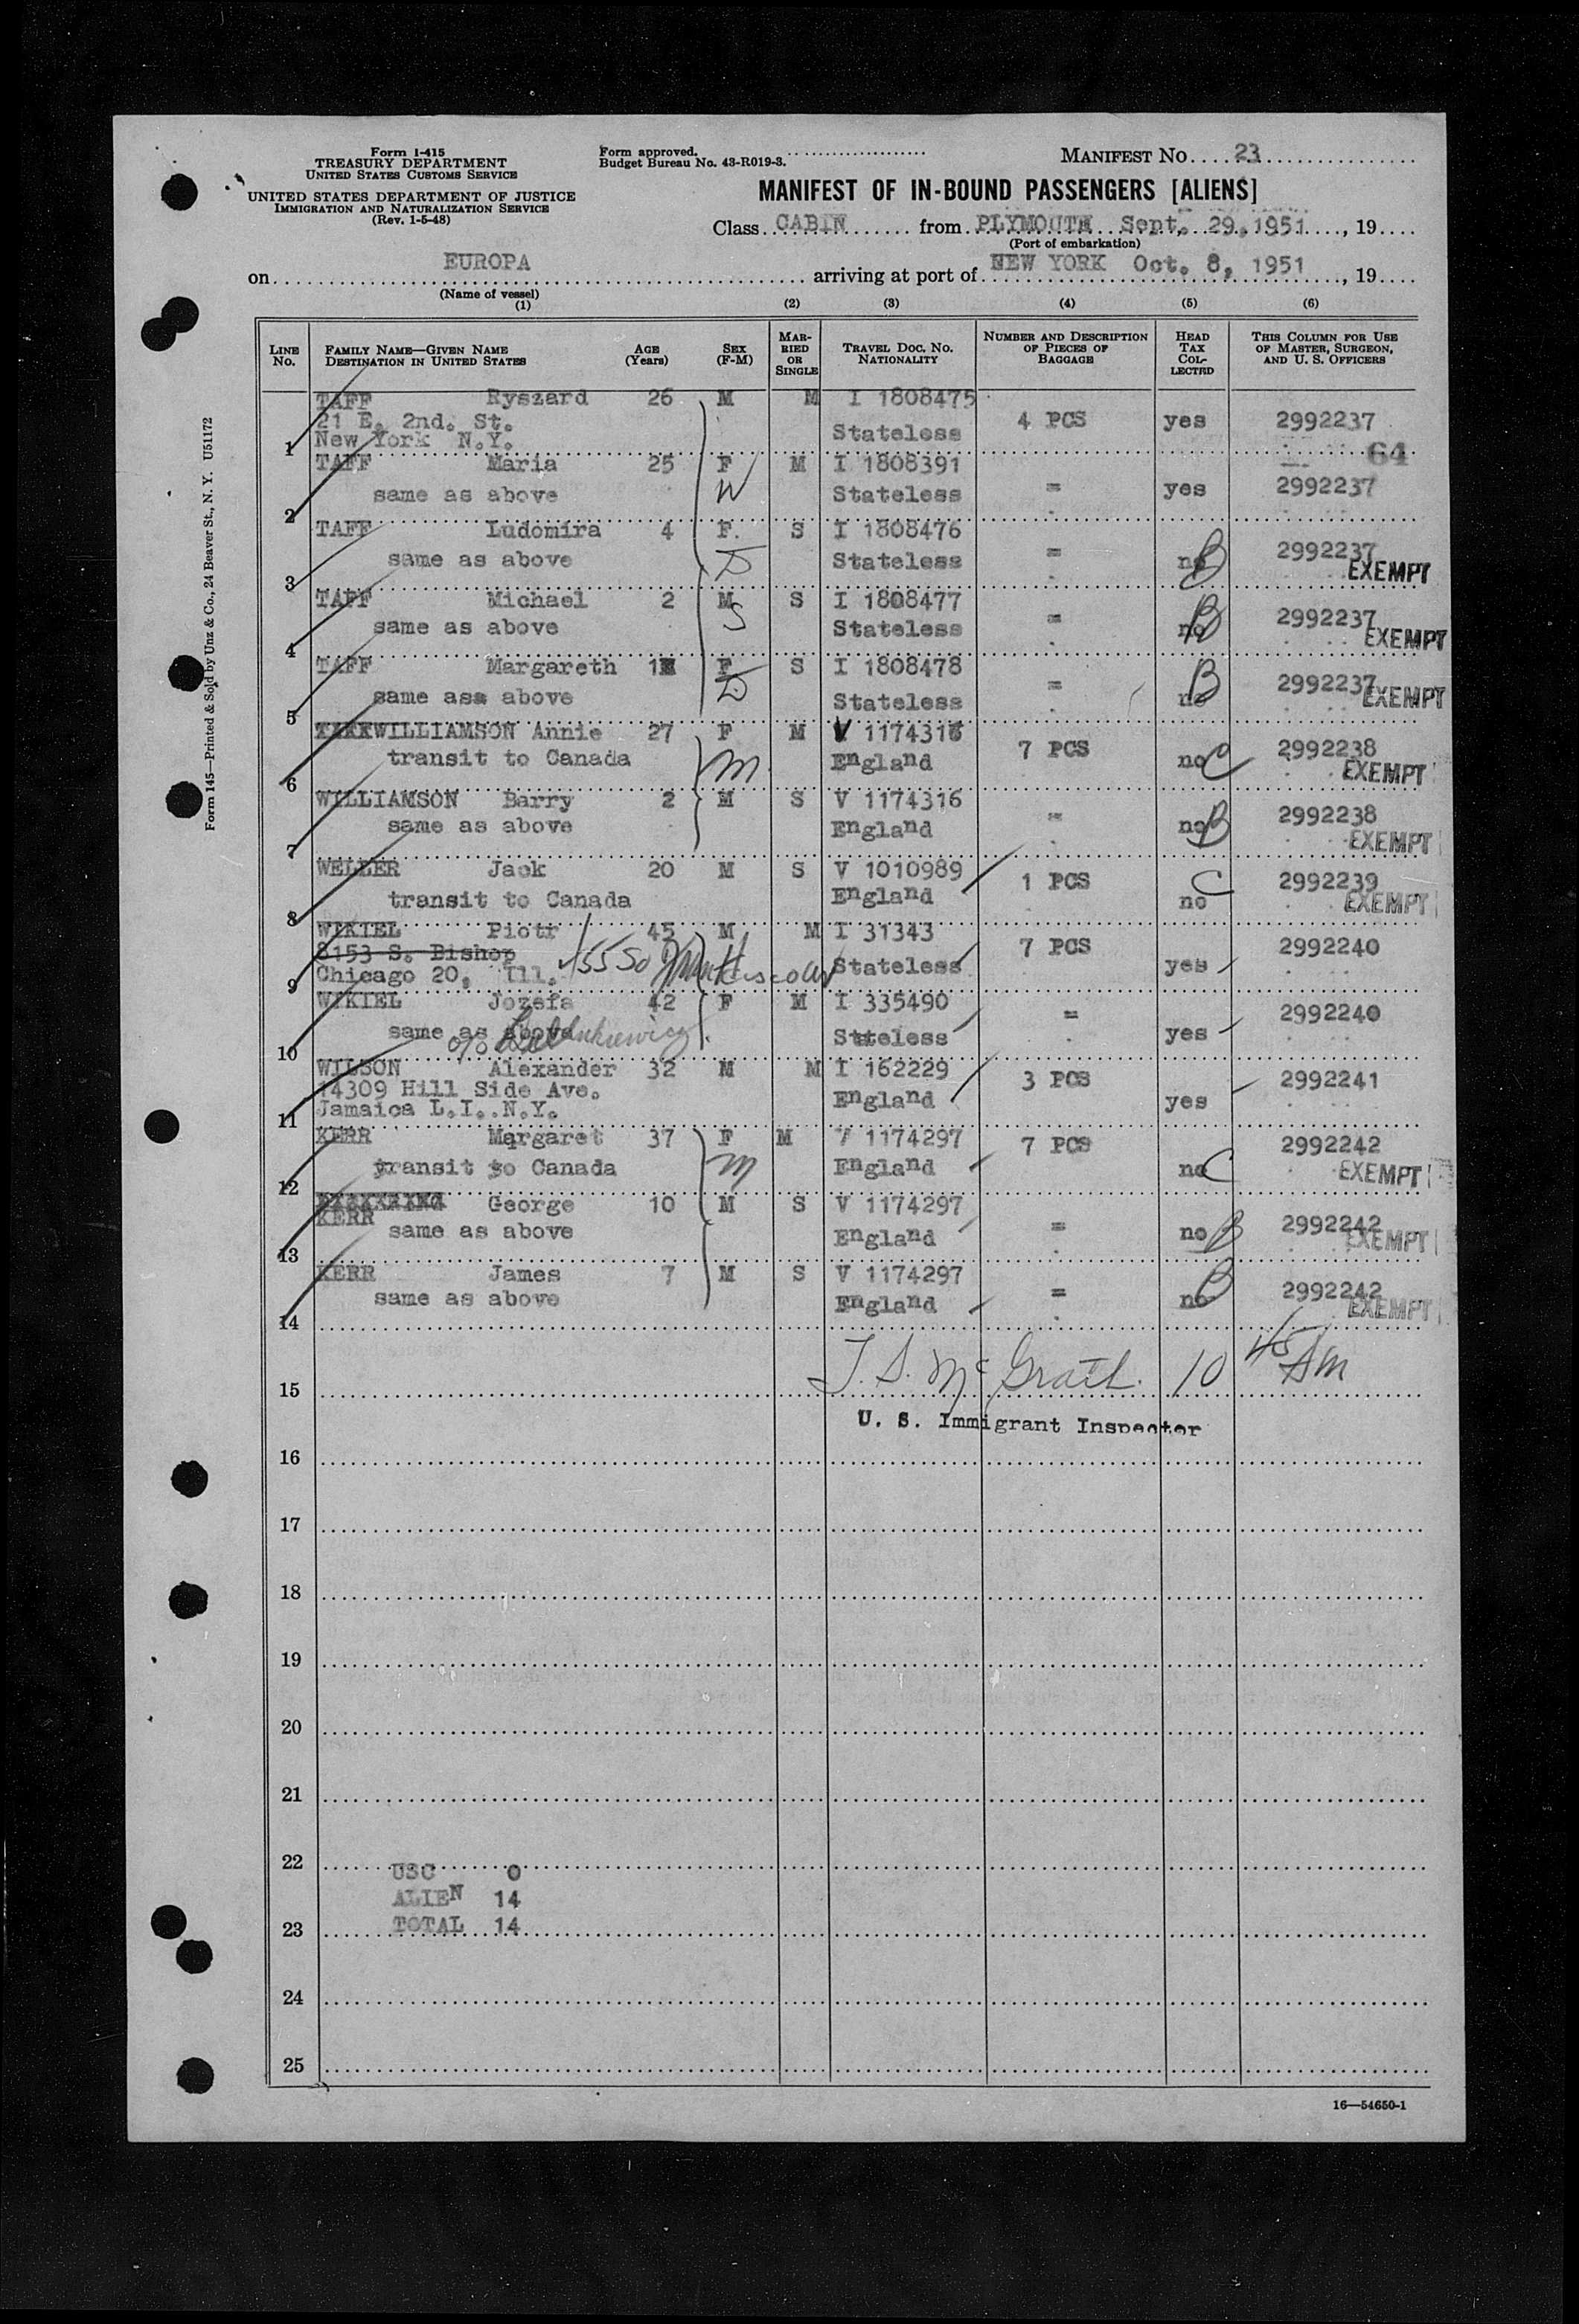 Form I-415
TREASURY DEPARTMENT
UNITED STATES CUSTOMS SERVICE
UNITED STATES DEPARTMENT OF JUSTICE
IMMIGRATION AND NATURALIZATION SERVICE
(Rev. 1-5-48)
Form approved.
Budget Bureau No. 43-R019-3.
MANIFEST No. 23
MANIFEST OF IN-BOUND PASSENGERS [ALIENS]
Class CABIN from PLYMOUTH Sept. 29, 1951, 19
(Port of embarkation)
on EUROPA arriving at port of NEW YORK Oct. 8, 1951, 19
(Name of vessel)
(1) (2) (3) (4) (5) (6)
LINE No. FAMILY NAME—GIVEN NAME DESTINATION IN UNITED STATES AGE (Years) SEX (F-M) MARRIED OR SINGLE TRAVEL DOC. NO. NATIONALITY NUMBER AND DESCRIPTION OF PIECES OF BAGGAGE HEAD TAX COLLECTED THIS COLUMN FOR USE OF MASTER, SURGEON, AND U. S. OFFICERS
TAFF Ryszard 26 M M I 1808475
21 E. 2nd. St. Stateless 4 PCS yes 2992237
1 New York N.Y. 64
TAFF Maria 25 F M I 1808391
2 same as above W Stateless = yes 2992237
TAFF Ludomira 4 F. S I 1808476
3 same as above D Stateless = no B 2992237 EXEMPT
TAFF Michael 2 M S I 1808477
4 same as above S Stateless = no B 2992237 EXEMPT
TAFF Margareth 1 F S I 1808478
5 same ass above D Stateless = no B 2992237 EXEMPT
WILLIAMSON Annie 27 F M V 1174316
6 transit to Canada m England 7 PCS no C 2992238 EXEMPT
WILLIAMSON Barry 2 M S V 1174316
7 same as above England = no B 2992238 EXEMPT
WELLER Jack 20 M S V 1010989
8 transit to Canada England 1 PCS no C 2992239 EXEMPT
WIKIEL Piotr 45 M M I 31343
8153 S. Bishop 5550 7 PCS 2992240
9 Chicago 20, Ill. Stateless yes
WIKIEL Jozefa 42 F M I 335490
10 same as above c/o Stateless = yes 2992240
WILSON Alexander 32 M M I 162229
14309 Hill Side Ave. England 3 PCS 2992241
11 Jamaica L.I..N.Y. yes
KERR Margaret 37 F M V 1174297
12 transit to Canada m England 7 PCS no C 2992242 EXEMPT
George 10 M S V 1174297
KERR
13 same as above England = no B 2992242 EXEMPT
KERR James 7 M S V 1174297
14 same as above England = no B 2992242 EXEMPT
15 T. S. McGrath 10 45 AM
U. S. Immigrant Inspector
16
17
18
19
20
21
22 USC 0
ALIEN 14
23 TOTAL 14
24
25
16—54650-1
Form 145—Printed & Sold by Unz & Co., 24 Beaver St., N. Y. U51172